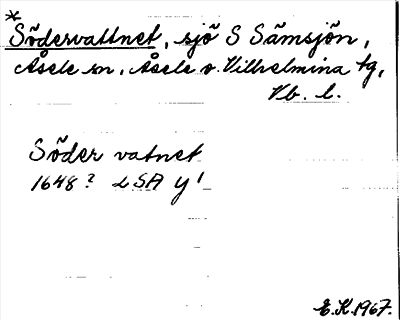 *
Södervattnet, sjö S Sämsjön,
Åsele sn, Åsele o. Vilhelmina tg,
Vb. l.
Söder vatnet
1648? LSA y1
E.K. 1967.